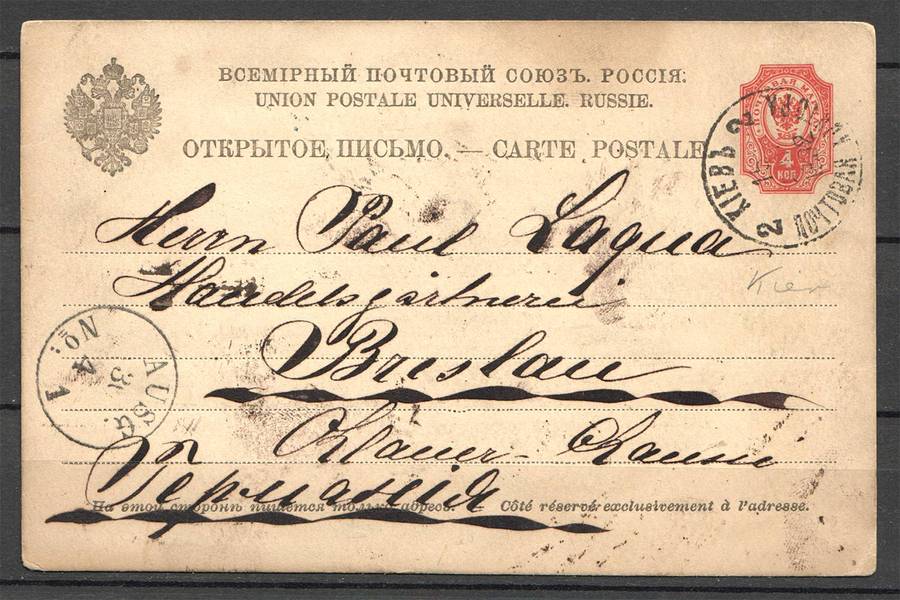 ВСЕМІРНЫЙ ПОЧТОВЫЙ СОЮЗЪ. РОССІЯ.
UNION POSTALE UNIVERSELLE. RUSSIE.
ОТКРЫТОЕ ПИСЬМО. — CARTE POSTALE
4
КОП.
КІЕВЪ 2
ПОЧТОВАЯ
2
Herrn Paul Laqua
Handelsgärtnerei
Kiev
Breslau
AUSG.
No. 4
1
Германія
На этой сторонѣ пишется только адресъ. Côté réservé exclusivement à l'adresse.